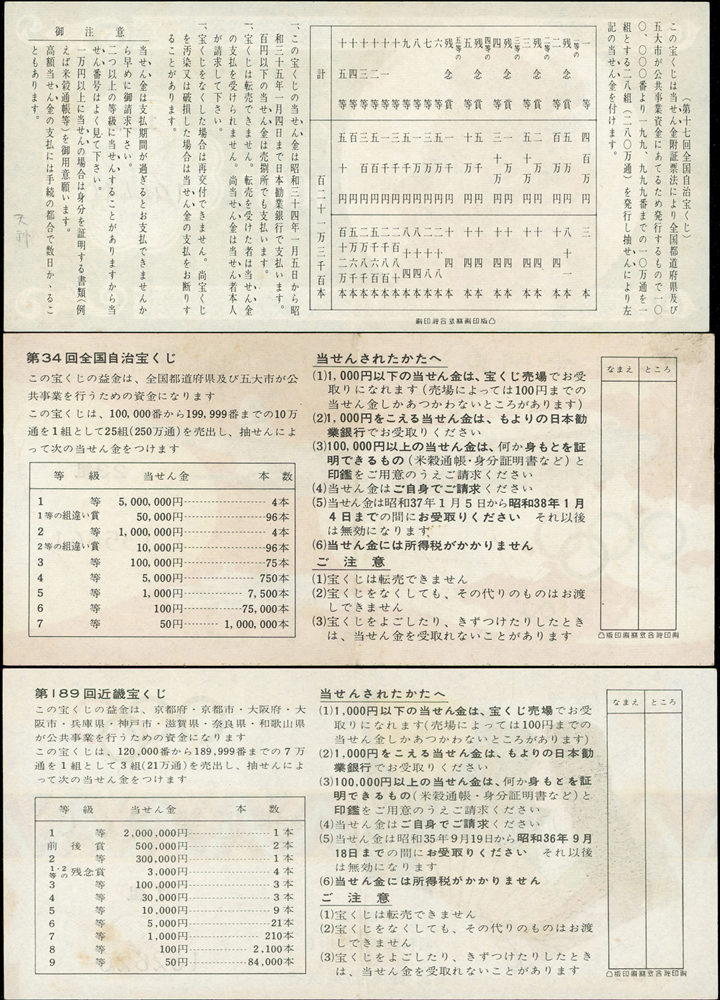 （第十七回全国自治宝くじ）
この宝くじは当せん金附証票法により全国都道府県及び
五大市が公共事業資金にあてるため発行するもので一〇
〇、〇〇〇番より一九九、九九九番までの一〇万通を一
組とする二八組（二八〇万通）を発行し抽せんにより左
記の当せん金を付けます。
一等 四百万円 三本
計 百二十一万三千百本
一、この宝くじの当せん金は昭和三十四年一月五日から昭
和三十五年一月四日まで日本勧業銀行で支払います。
百円以下の当せん金は売捌所でも支払います。
一、宝くじは転売できません。転売を受けた者は当せん金
の支払を受けられません。尚当せん金は当せん者本人
が請求して下さい。
一、宝くじをなくした場合は再交付できません。尚宝くじ
を汚染又は破損した場合は当せん金の支払をお断りす
ることがあります。
御注意
当せん金は支払期間が過ぎるとお支払できませんか
ら早めに御請求下さい。
二つ以上の等級に当せんすることがありますから当
せん番号はよく見て下さい。
一万円以上に当せんの場合は身分を証明する書類（例
えば米穀通帳等）を御用意願います。
高額当せん金の支払には手続の都合で数日かゝるこ
ともあります。
第34回全国自治宝くじ
この宝くじの益金は、全国都道府県及び五大市が公
共事業を行うための資金になります
この宝くじは、100,000番から199,999番までの10万
通を1組として25組(250万通)を売出し、抽せんによ
って次の当せん金をつけます
等 級 当せん金 本 数
1 等 5,000,000円 4本
1等の組違い賞 50,000円 96本
2 等 1,000,000円 4本
2等の組違い賞 10,000円 96本
3 等 100,000円 75本
4 等 5,000円 750本
5 等 1,000円 7,500本
6 等 100円 75,000本
7 等 50円 1,000,000本
当せんされたかたへ
(1)1,000円以下の当せん金は、宝くじ売場でお受
取りになれます(売場によっては100円までの
当せん金しかあつかわないところがあります)
(2)1,000円をこえる当せん金は、もよりの日本勧
業銀行でお受取りください
(3)100,000円以上の当せん金は、何か身もとを証
明できるもの(米穀通帳・身分証明書など)と
印鑑をご用意のうえご請求ください
(4)当せん金はご自身でご請求ください
(5)当せん金は昭和37年1月5日から昭和38年1月
4日までの間にお受取りください それ以後
は無効になります
(6)当せん金には所得税がかかりません
ご 注 意
(1)宝くじは転売できません
(2)宝くじをなくしても、その代りのものはお渡
しできません
(3)宝くじをよごしたり、きずつけたりしたとき
は、当せん金を受取れないことがあります
なまえ ところ
第189回近畿宝くじ
この宝くじの益金は、京都府・京都市・大阪府・大
阪市・兵庫県・神戸市・滋賀県・奈良県・和歌山県
が公共事業を行うための資金になります
この宝くじは、120,000番から189,999番までの7万
通を1組として3組(21万通)を売出し、抽せんによ
って次の当せん金をつけます
等 級 当せん金 本 数
1 等 2,000,000円 1本
前 後 賞 500,000円 2本
2 等 300,000円 1本
1・2等の残念賞 3,000円 4本
3 等 100,000円 3本
4 等 30,000円 3本
5 等 10,000円 9本
6 等 5,000円 21本
7 等 1,000円 210本
8 等 100円 2,100本
9 等 50円 84,000本
当せんされたかたへ
(1)1,000円以下の当せん金は、宝くじ売場でお受
取りになれます(売場によっては100円までの
当せん金しかあつかわないところがあります)
(2)1,000円をこえる当せん金は、もよりの日本勧
業銀行でお受取りください
(3)100,000円以上の当せん金は、何か身もとを証
明できるもの(米穀通帳・身分証明書など)と
印鑑をご用意のうえご請求ください
(4)当せん金はご自身でご請求ください
(5)当せん金は昭和35年9月19日から昭和36年9月
18日までの間にお受取りください それ以後
は無効になります
(6)当せん金には所得税がかかりません
ご 注 意
(1)宝くじは転売できません
(2)宝くじをなくしても、その代りのものはお渡
しできません
(3)宝くじをよごしたり、きずつけたりしたとき
は、当せん金を受取れないことがあります
なまえ ところ